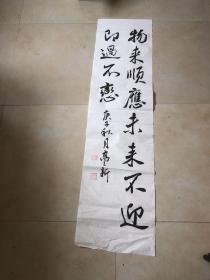 物来順應未来不迎
即過不戀
庚子秋月亭新